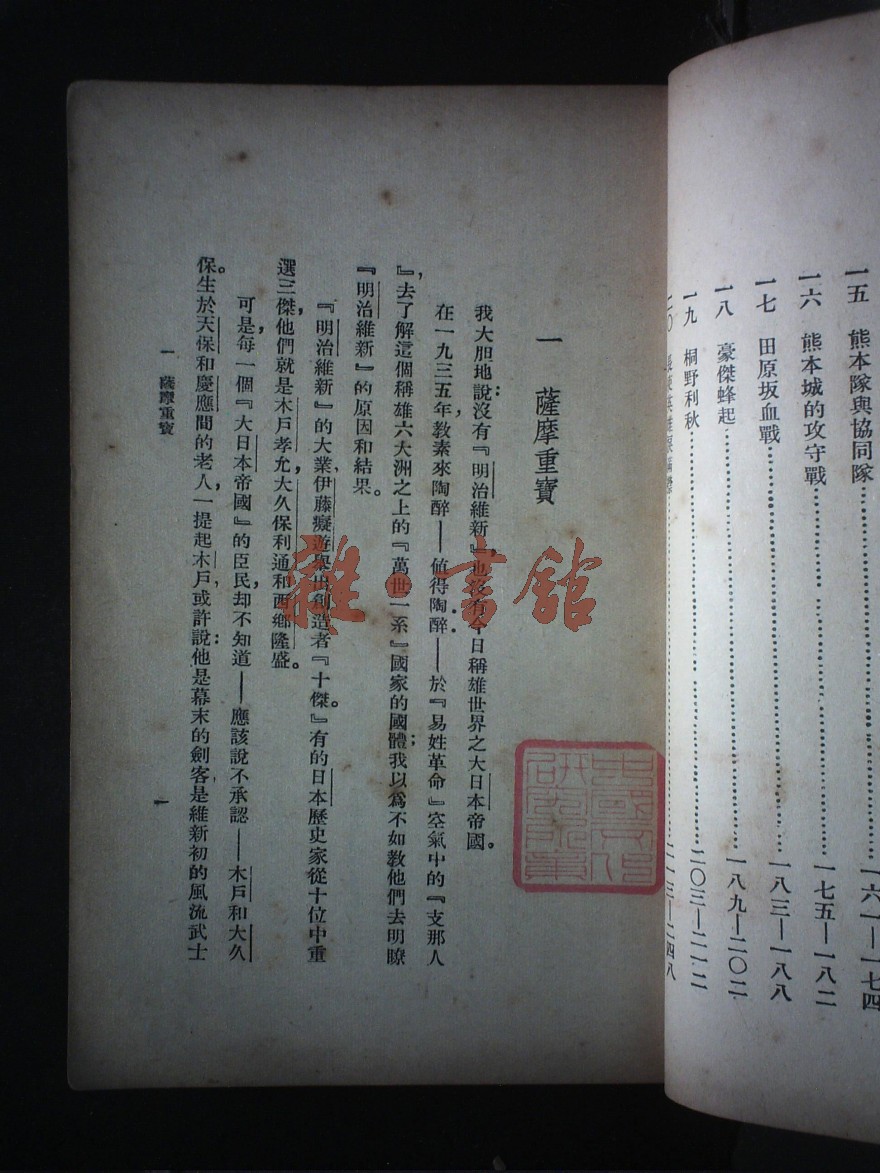 一五　熊本隊與協同隊……一六一—一七四
一六　熊本城的攻守戰……一七五—一八二
一七　田原坂血戰……一八三—一八八
一八　豪傑蜂起……一八九—二〇二
一九　桐野利秋……二〇三—二一二
二〇　……二一三—二四八
一　薩摩重寶
我大胆地說：沒有『明治維新』，也沒有今日稱雄世界之大日本帝國。
在一九三五年，教素來陶醉——值得陶醉——於『易姓革命』空氣中的『支那人
』，去了解這個稱雄六大洲之上的『萬世一系』國家的國體；我以爲不如教他們去明瞭
『明治維新』的原因和結果。
『明治維新』的大業，伊藤癡遊舉出創造者『十傑』。有的日本歷史家從十位中重
選三傑，他們就是木戶孝允，大久保利通和西鄉隆盛。
可是，每一個『大日本帝國』的臣民，却不知道——應該說不承認——木戶和大久
保。生於天保和慶應間的老人，一提起木戶，或許說：他是幕末的劍客，是維新初的風流武士
一　薩摩重寶
一
雜·書館